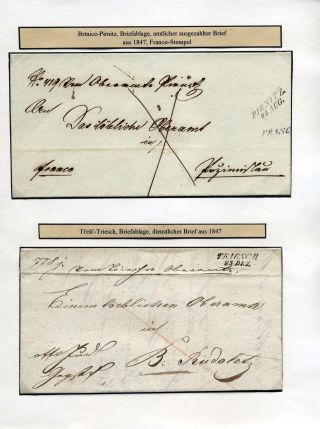 Brtnice-Pirnitz, Briefablage, amtlicher ausgezahlter Brief
aus 1847, Franco-Stempel
No. 419 Vom Oberamte Pirnitz
PIRNITZ
An
Das löbliche Oberamt
FRANCO
in
franco
Třešť-Triesch, Briefablage, dienstlicher Brief aus 1847
TRIESCH
23 DEZ.
Oberamte
Einem loeblichen Oberamte
in
B. Rudoletz